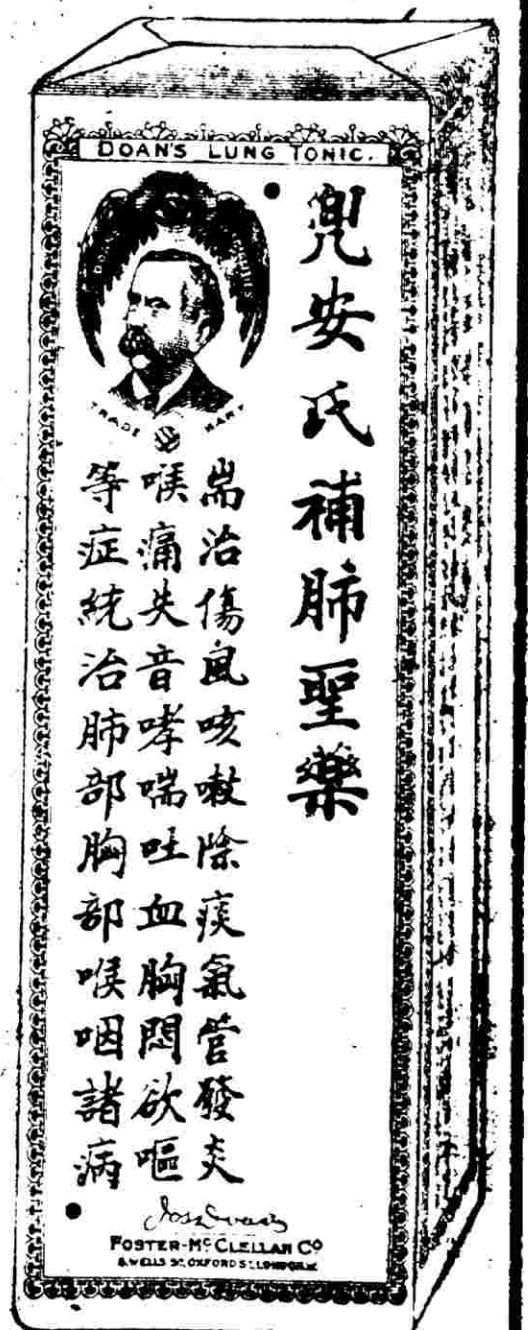 DOAN'S LUNG TONIC.
兜安氏補肺聖藥
TRADE MARK
耑治傷風咳嗽除痰氣管發炎
喉痛失音哮喘吐血胸悶欲嘔
等症統治肺部胸部喉咽諸病
FOSTER-McCLELLAN Co
8 WELLS ST. OXFORD ST. LONDON.W.